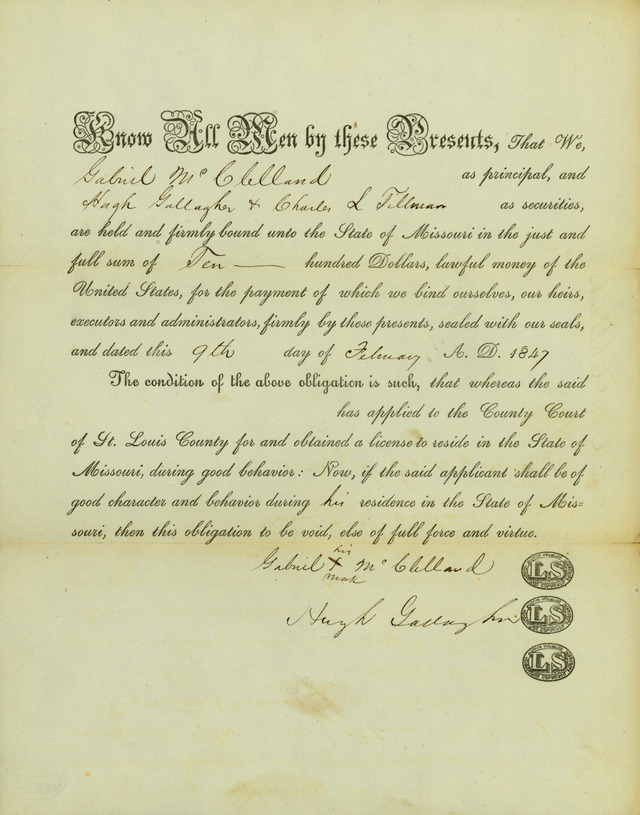 Know All Men by these Presents, That We,
Gabriel Mc Clelland as principal, and
Hugh Gallagher & Charles L Tillman as securities,
are held and firmly bound unto the State of Missouri in the just and
full sum of Ten hundred Dollars, lawful money of the
United States, for the payment of which we bind ourselves, our heirs,
executors and administrators, firmly by these presents, sealed with our seals,
and dated this 9th day of February A. D. 1847
The condition of the above obligation is such, that whereas the said
has applied to the County Court
of St. Louis County for and obtained a license to reside in the State of
Missouri, during good behavior: Now, if the said applicant shall be of
good character and behavior during his residence in the State of Mis=
souri, then this obligation to be void, else of full force and virtue.
his
Gabriel X Mc Clelland LS
mark
Hugh Gallagher LS
LS